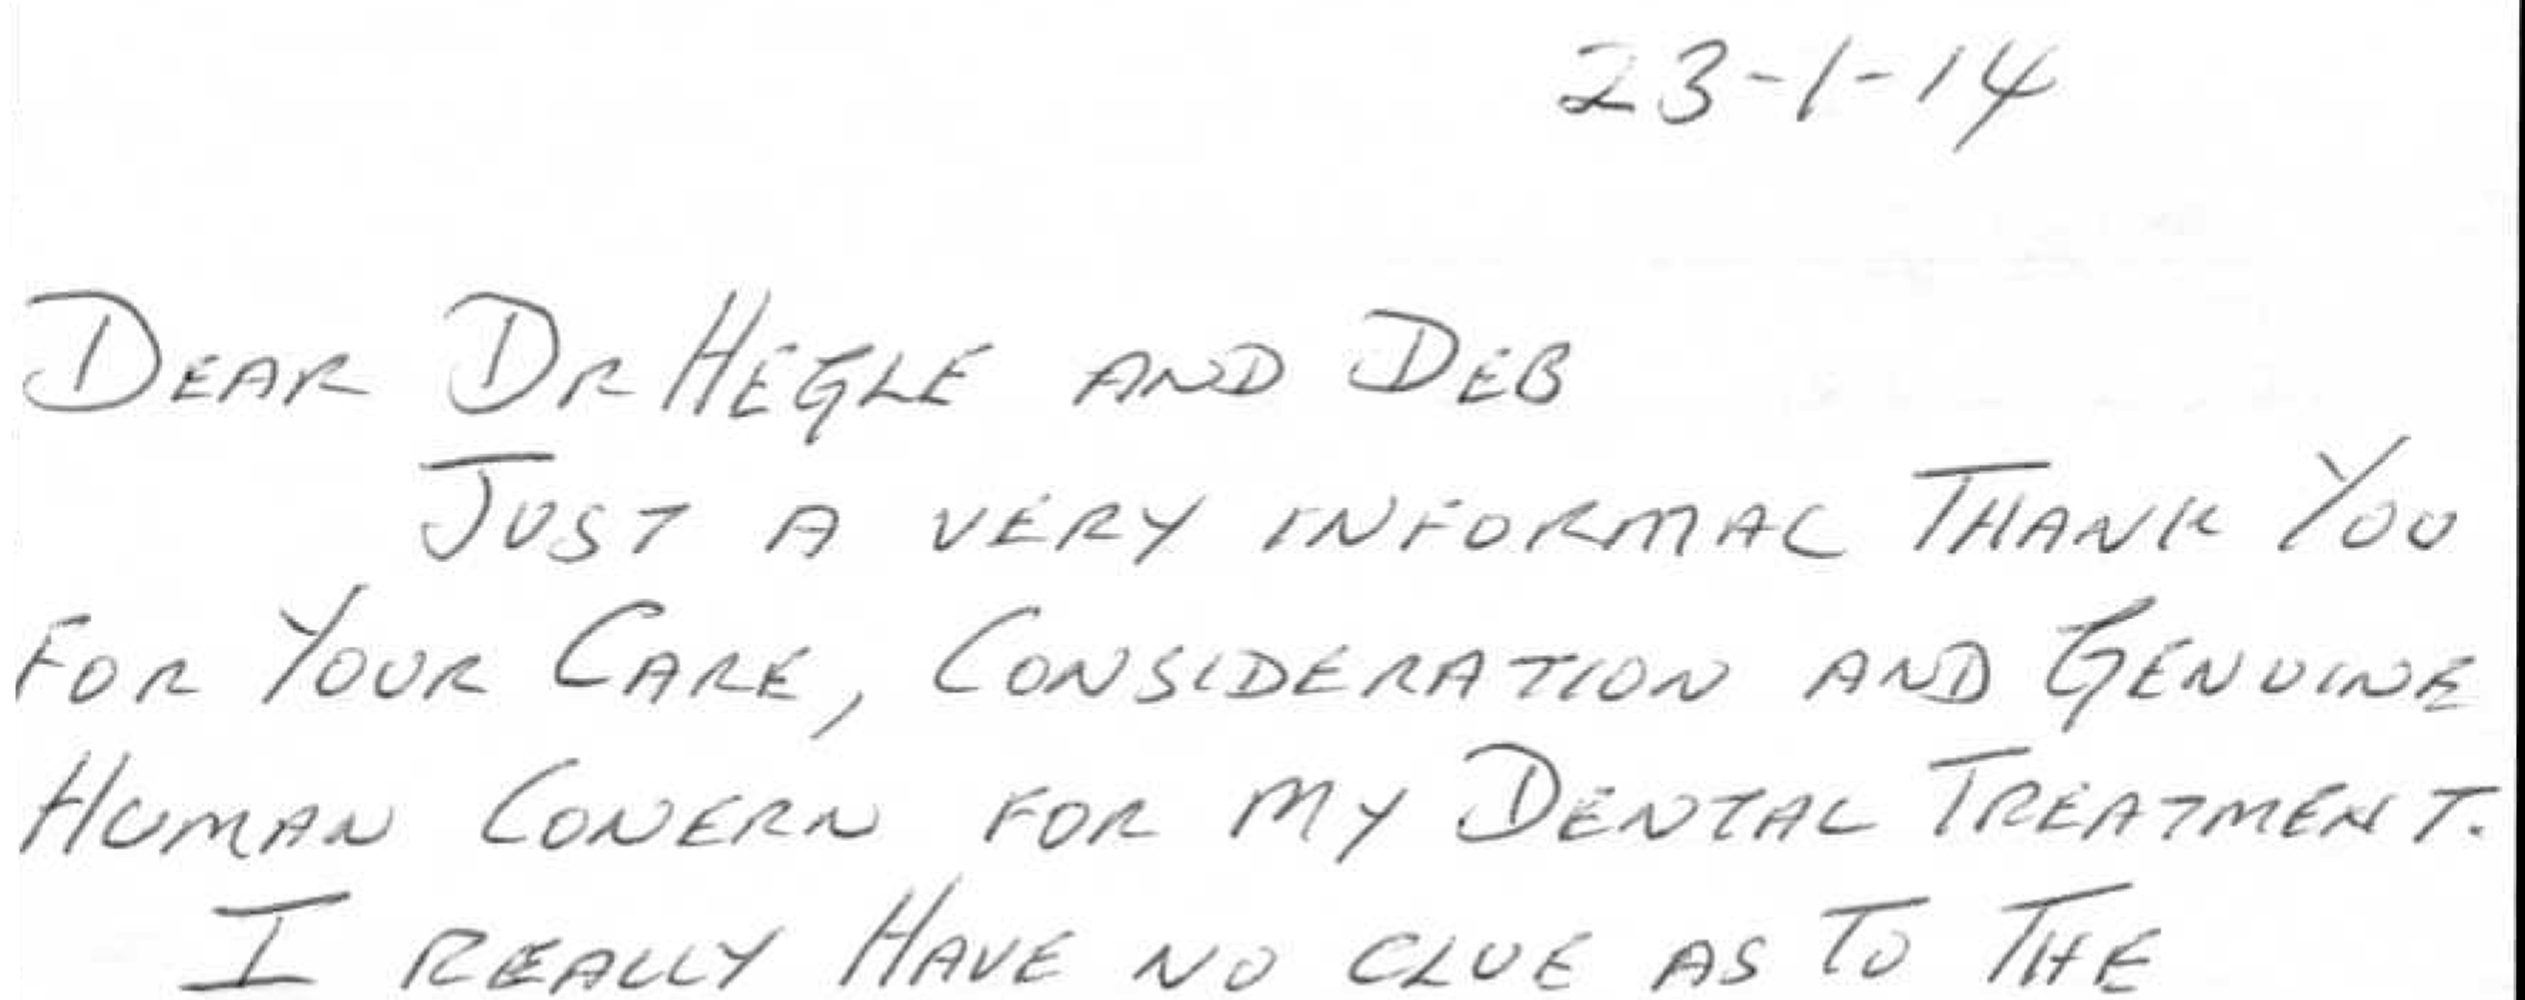 23-1-14
DEAR DR HEGLE AND DEB
JUST A VERY INFORMAL THANK YOU
FOR YOUR CARE, CONSIDERATION AND GENUINE
HUMAN CONERN FOR MY DENTAL TREATMENT.
I REALLY HAVE NO CLUE AS TO THE